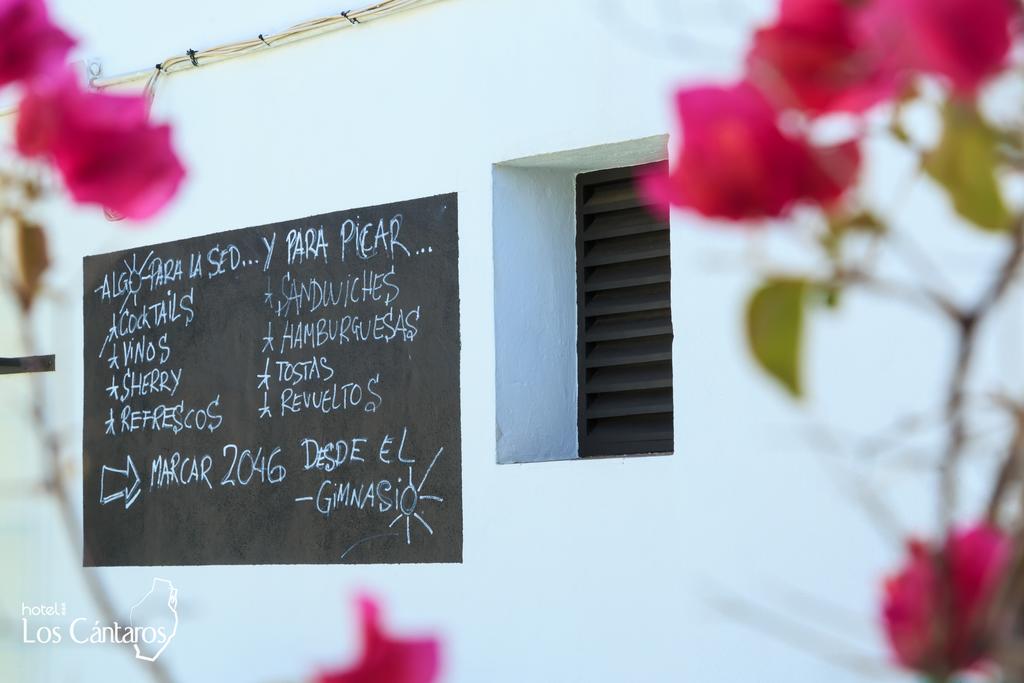 ALGO PARA LA SED...
*COCKTAILS
*VINOS
*SHERRY
*REFRESCOS
Y PARA PICAR...
*SANDWICHES
*HAMBURGUESAS
*TOSTAS
*REVUELTOS
MARCAR 2046 DESDE EL
-GIMNASIO
hotel
Los Cántaros